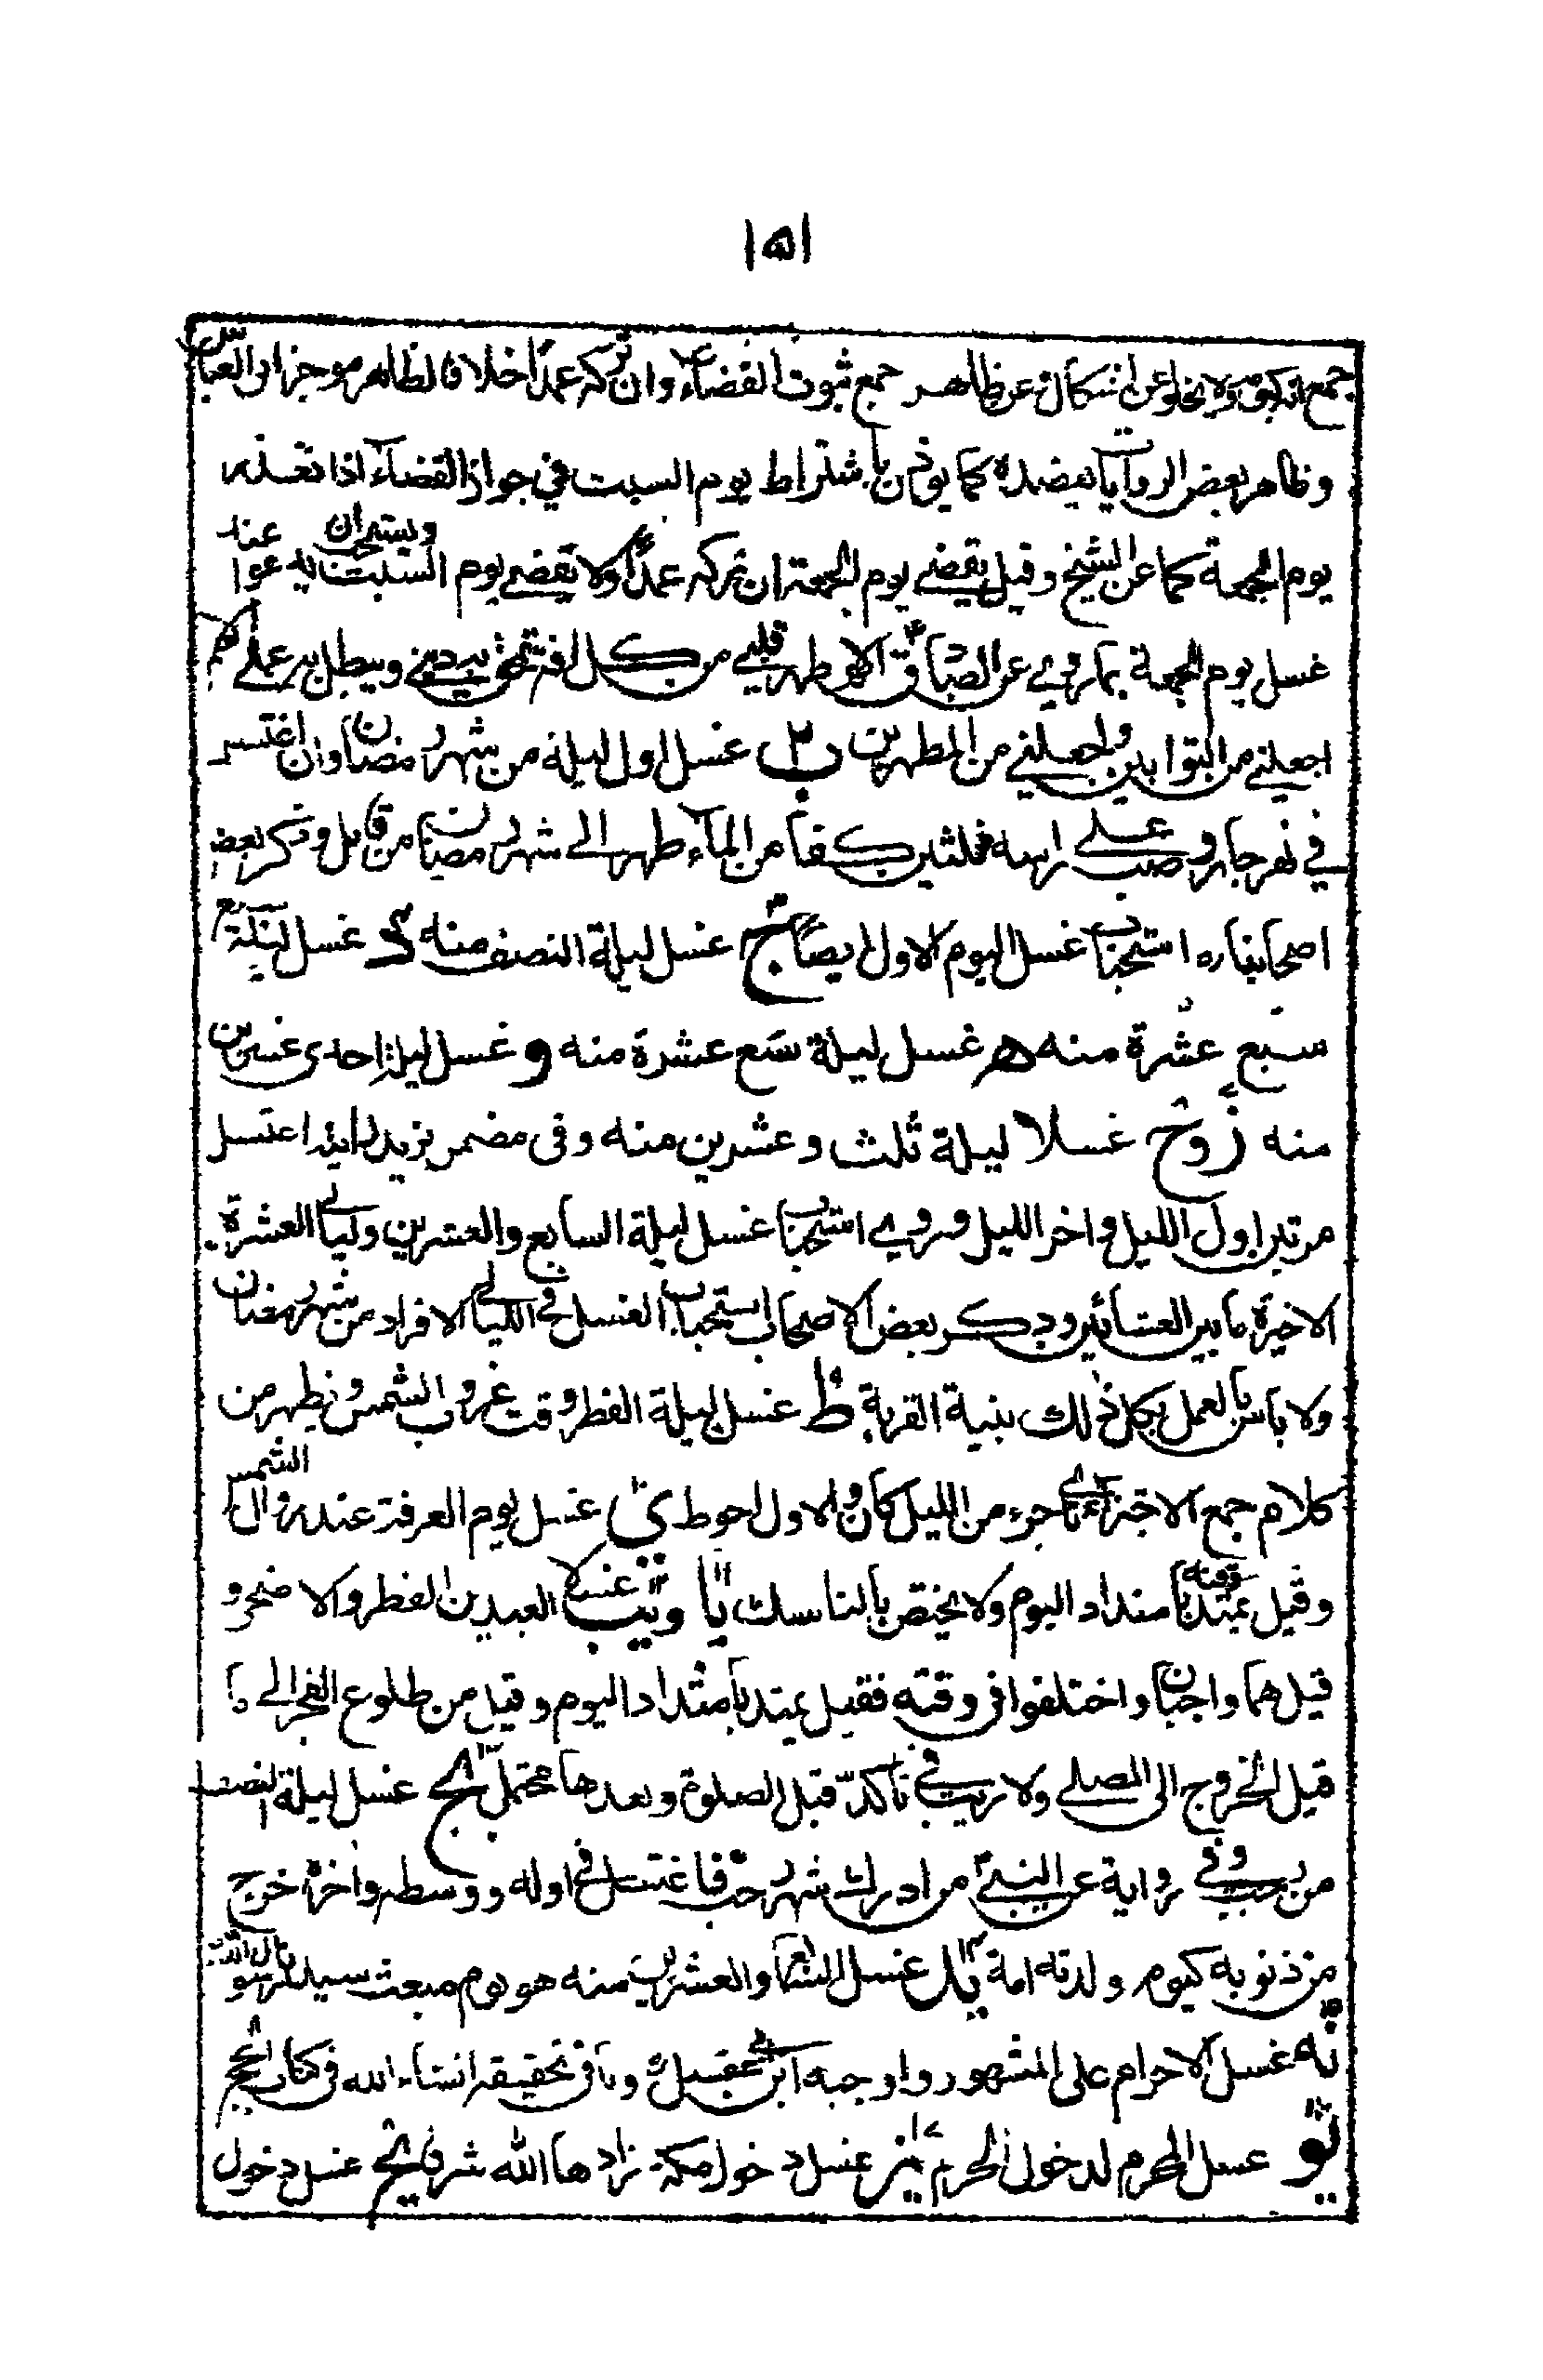 ١٥١
جمع ولا يخلو عن اشكال عن ظاهر جمع ثبوت القضاء وان تركه عمدًا خلافا لظاهر موجز ابى العباس
وظاهر بعض الروايات يعضده كما يوذن باشتراط يوم السبت في جواز القضاء اذا تعذر
يوم الجمعة كما عن الشيخ وقيل يقضي يوم الجمعة ان تركه عمدًا ولا يقضي يوم السبت ويستحب ان يدعوا عند
غسل يوم الجمعة بما روي عن الصادق اللهم طهر قلبي من كل افة تمحق بها ديني ويبطل بها عملي اللهم
اجعلني من التوابين واجعلني من المطهرين ب غسل اول ليلة من شهر رمضان وان اغتسل
في نهر جار وصب على راسه ثلثين كفا من الماء طهر الى شهر رمضان من قابل وذكر بعض
اصحابنا ره استحباب غسل اليوم الاول ايضا ج غسل ليلة النصف منه د غسل ليلة
سبع عشرة منه ه غسل ليلة تسع عشرة منه و غسل ليلة احدى عشرين
منه ز وح غسلا ليلة ثلث وعشرين منه وفى مضمر بريد اغتسل
مرتين اول الليل واخر الليل وروي استحباب غسل ليلة السابع والعشرين وليالي العشرة
الاخيرة ما بين العشائين وذكر بعض الاصحاب استحباب الغسل في الليالي الافراد من شهر رمضان
ولا باس بالعمل بكل ذلك بنية القربة ط غسل ليلة الفطر وقت غروب الشمس ويظهر من
كلام جمع الاجتزاء باي جزء من الليل كان والاول احوط ى غسل يوم العرفة عند زوال الشمس
وقيل يمتد وقته بامتداد اليوم ولا يختص بالناسك يا ويب غسلا العيدين الفطر والاضحى و
قيل هما واجبان واختلفوا فى وقته فقيل يمتد بامتداد اليوم وقيل من طلوع الفجر الى ما
قبل الخروج الى المصلى ولا ريب في تاكد قبل الصلوة وبعدها محتمل يج غسل ليلة النصف
من رجب وفي رواية عن النبي من ادرك شهر رجب فاغتسل في اوله ووسطه واخره خرج
من ذنوبه كيوم ولدته امه يد غسل السابع والعشرين منه هو يوم مبعث سيدنا رسول الله
يه غسل الاحرام على المشهور واوجبه ابن ابي عقيل ره وياتى تحقيقه انشاء الله فى كتاب الحج
يو غسل المحرم لدخول الحرم يز غسل دخول مكة زادها الله شرفا يح غسل دخول